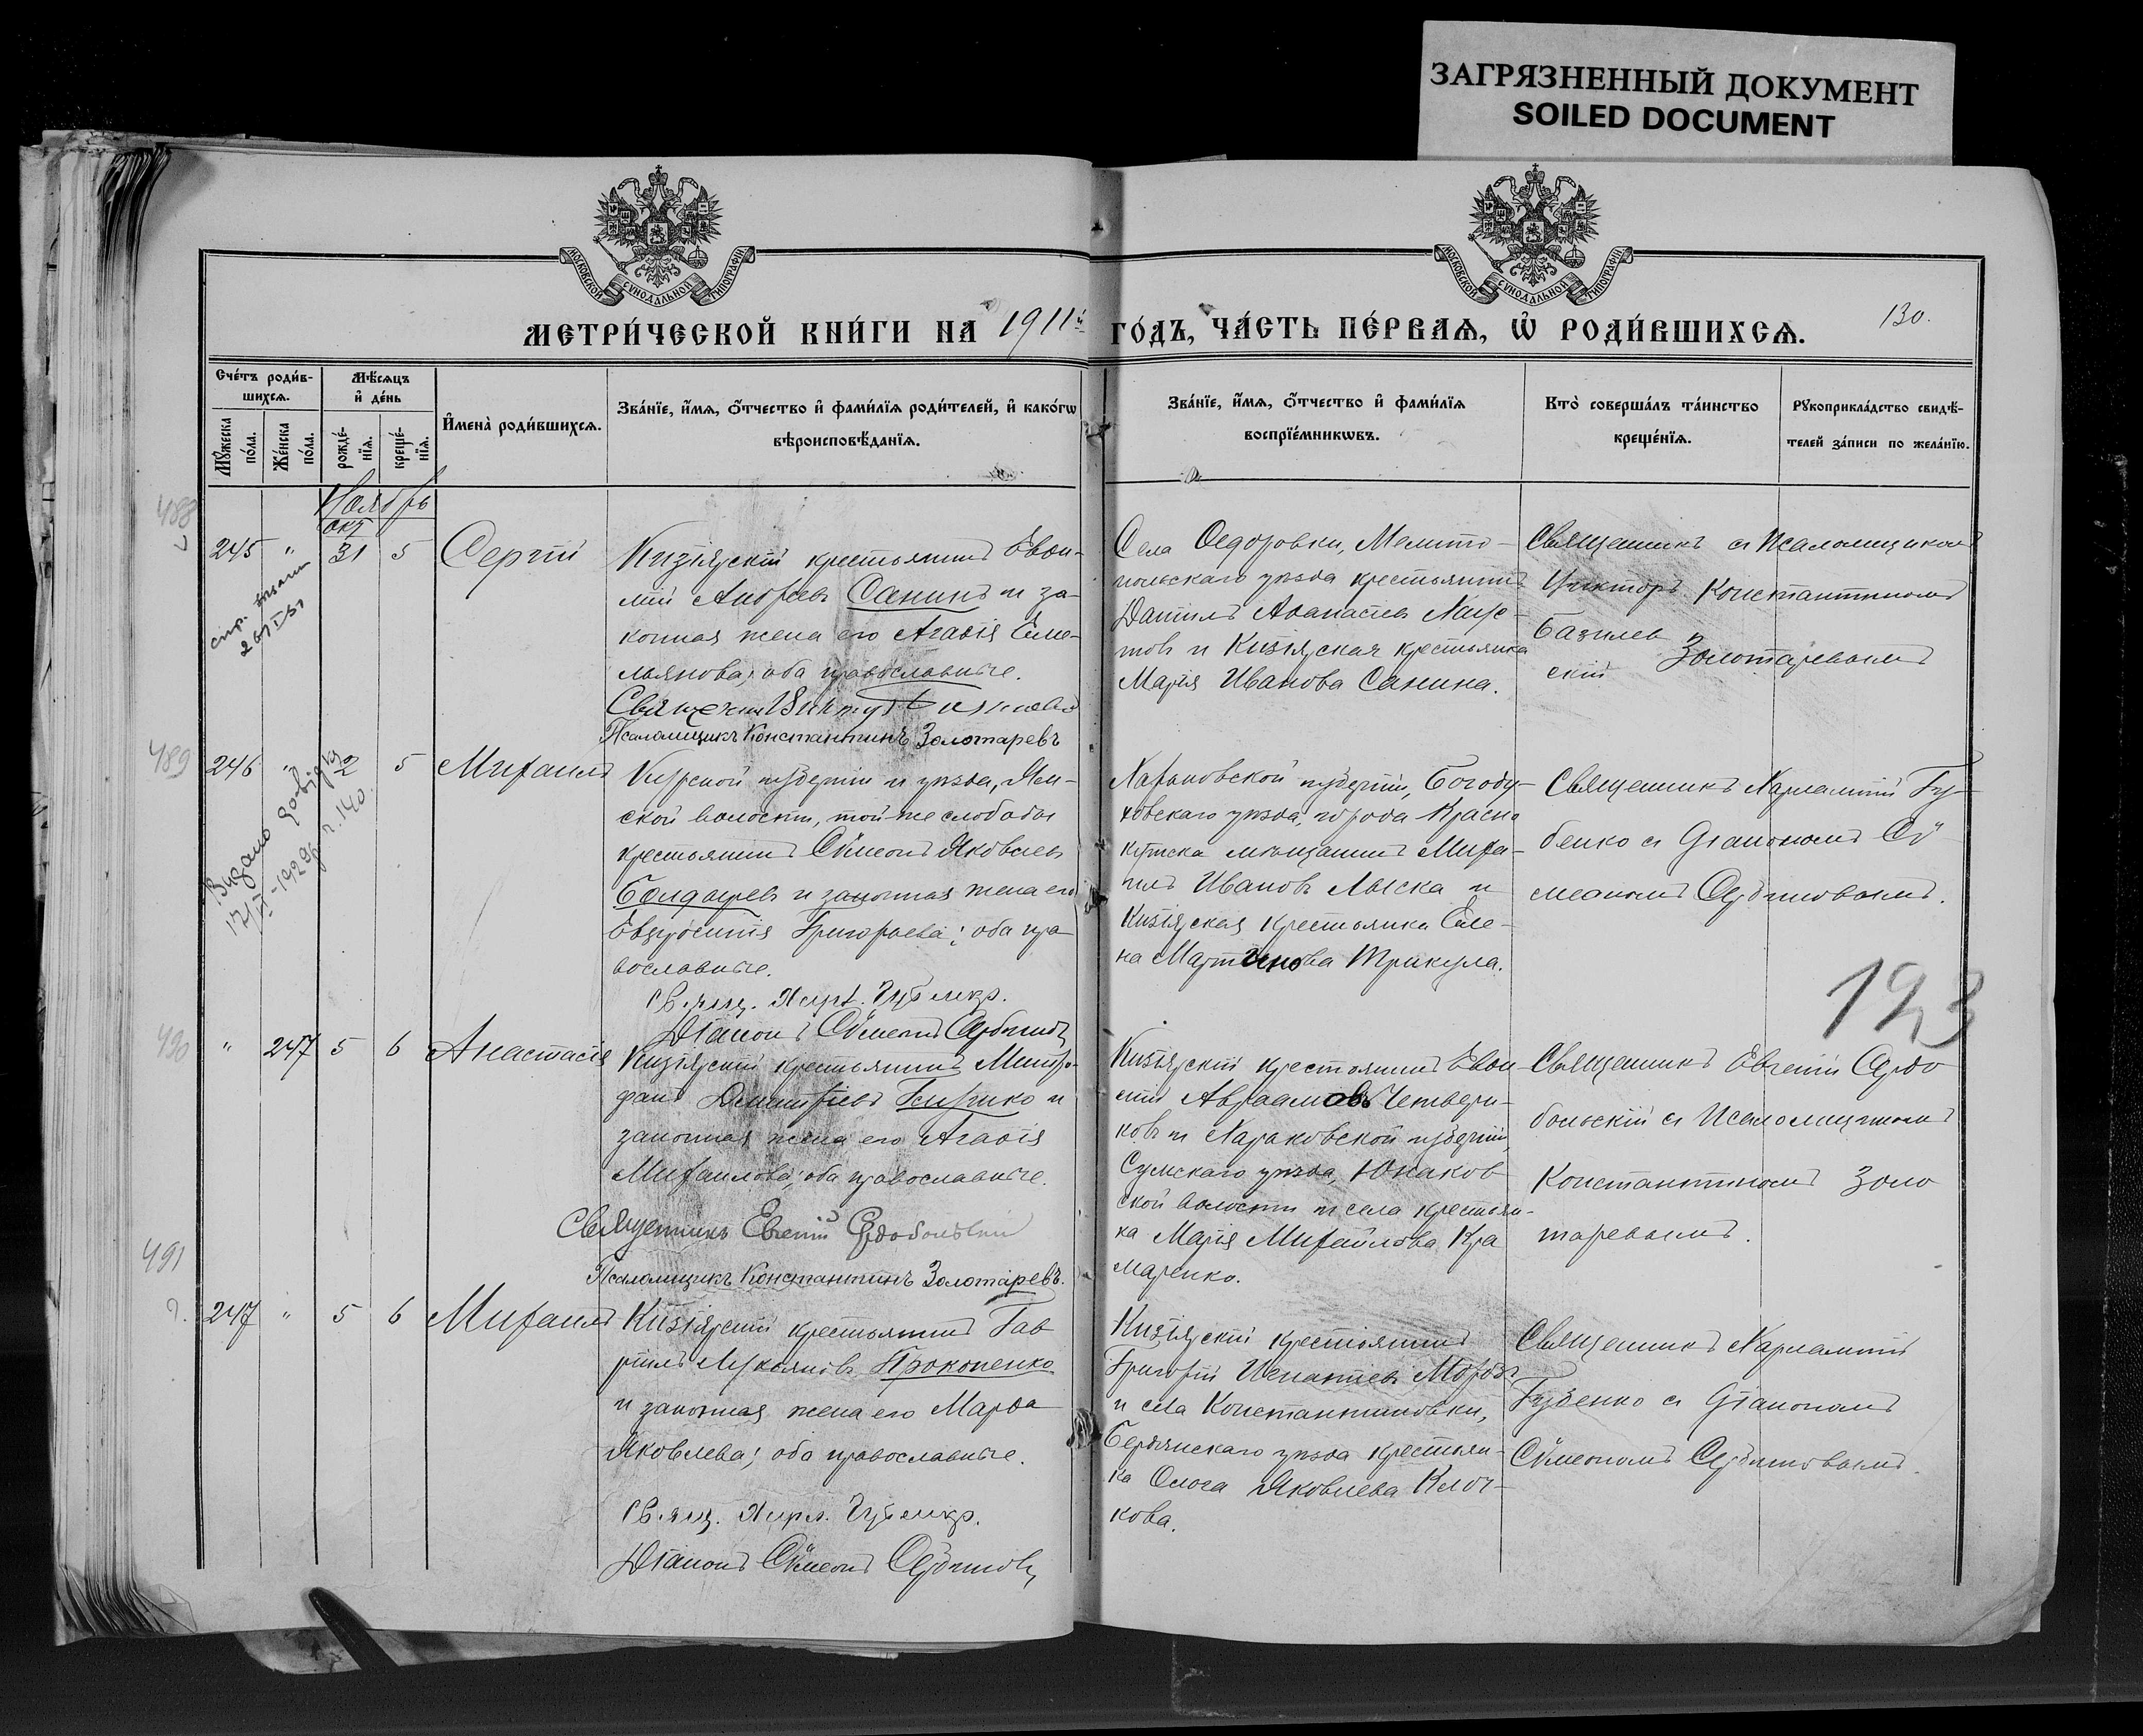 ЗАГРЯЗНЕННЫЙ ДОКУМЕНТ
SOILED DOCUMENT
МОСКОВСКОЙ СѴНОДАЛЬНОЙ ТИПОГРАФІИ
МОСКОВСКОЙ СѴНОДАЛЬНОЙ ТИПОГРАФІИ
МЕТРИ́ЧЕСКОЙ КНИ́ГИ НА 1911й ГО́ДЪ, ЧА́СТЬ ПЕ́РВАѦ, Ѡ҆ РОДИ́ВШИХСѦ.
130.
Счéтъ роди́в-
шихсѧ.
Мꙋ́жеска по́ла.
Же́нска по́ла.
Мѣ́сѧцъ
и҆ де́нь
рожде́-
нїѧ.
креще́-
нїѧ.
И҆мена̀ роди́вшихсѧ.
Зва́нїе, и҆́мѧ, ѻ҆́тчество и҆ фами́лїѧ роди́телей, и҆ како́гѡ
вѣроисповѣ́данїѧ.
Зва́нїе, и҆́мѧ, ѻ҆́тчество и҆ фами́лїѧ
воспрїе́мникѡвъ.
Кто̀ соверша́лъ та́инство
креще́нїѧ.
Рꙋкоприкла́дство свидѣ́-
телей за́писи по жела́нїю.
Ноябрь
488
окт
245 " 31 5 Сергій
Кизіярскій крестьянинъ Евѳи-
мій Андреевъ Санинъ и за-
конная жена его Агаѳія Еме-
льянова; оба православные.
Псаломщикъ Константинъ Золотаревъ
Села Ѳедоровки, Мелито-
польскаго уѣзда крестьянинъ
Даніилъ Аѳанасіевъ
и Кизіярская крестьянка
Марія Иванова Санина.
Священникъ съ Псаломщикомъ
Викторъ Константиномъ
Базилев
скій Золотаревымъ
489
246 " 2 5 Михаилъ
Видано
Курской губерніи и уѣзда, Ям-
ской волости, той-же слободы
крестьянинъ Сѵмеонъ Яковлевъ
Болдыревъ и законная жена его
Евфросинія Григорьева; оба пра-
вославные.
Діаконъ Сѵмеонъ Сербиновъ
Харьковской губерніи, Богоду-
ховскаго уѣзда, города Красно
кутска мѣщанинъ Миха-
илъ Ивановъ Лыска и
Кизіярская крестьянка Еле-
на Мартинова Трикула.
Священникъ Харлампій Гу-
бенко съ Діакономъ Сѵ
меономъ Сербиновымъ.
123
490
" 247 5 6 Анастасія
Кизіярскій крестьянинъ Митро-
фанъ Димитріевъ Кирико и
законная жена его Агаѳія
Михаилова; оба православные.
Священникъ Евгеній Сердобольскій
Псаломщикъ Константинъ Золотаревъ.
Кизіярскій крестьянинъ Евѳи-
мій Авраамовъ Четвери-
ковъ и Харьковской губерніи,
Сумскаго уѣзда, Юнаков
ской волости и села крестьян-
ка Марія Михайлова Кра
маренко.
Священникъ Евгеній Сердо
больскій съ Псаломщикомъ
Константиномъ Золо
таревымъ.
491
247 " 5 6 Михаилъ
Кизіярскій крестьянинъ Гав
ріилъ Лукьяновъ Прокопенко
и законная жена его Марѳа
Яковлева; оба православные.
Діаконъ Сѵмеонъ Сербиновъ
Кизіярскій крестьянинъ
Григорій Игнатіевъ Морозъ
и села Константиновки,
Бердянскаго уѣзда крестьян-
ка Ольга Яковлева Клоч-
кова.
Священникъ Харлампій
Губенко съ Діакономъ
Сѵмеономъ Сербиновымъ.